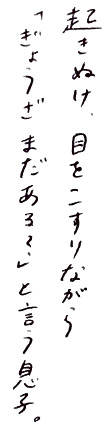 起きぬけ、目をこすりながら
「ぎょうざまだある?」と言う息子。